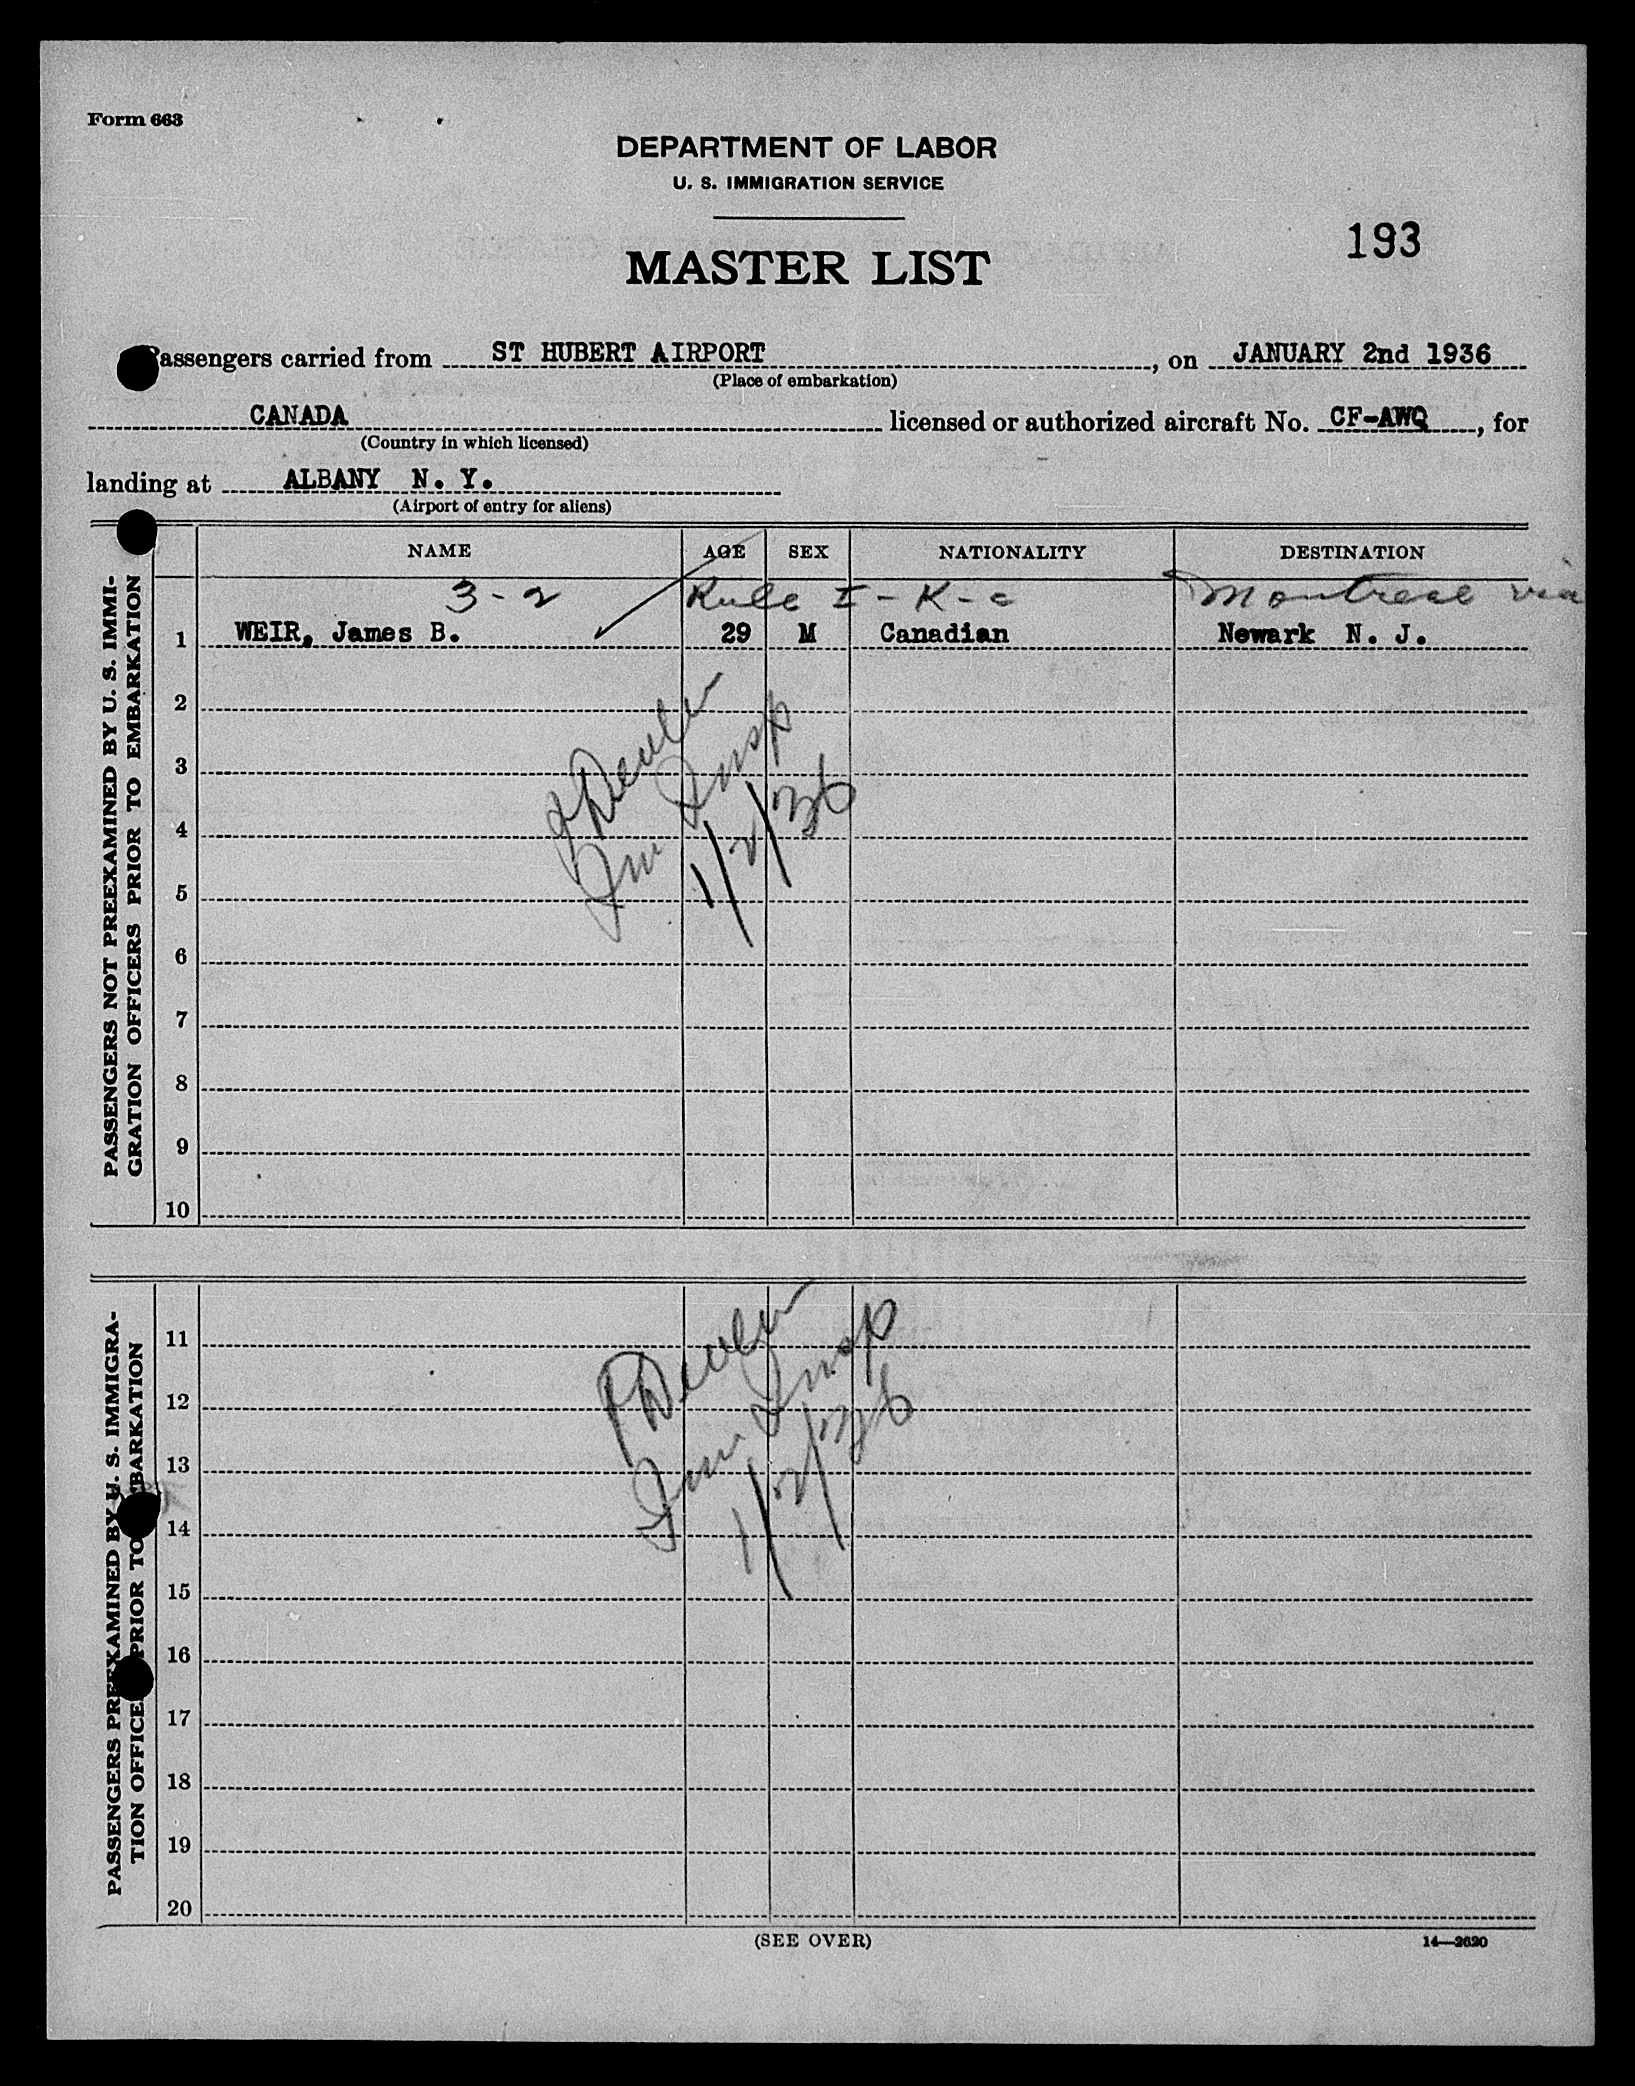 Form 663
DEPARTMENT OF LABOR
U. S. IMMIGRATION SERVICE
193
MASTER LIST
Passengers carried from ST HUBERT AIRPORT, on JANUARY 2nd 1936
(Place of embarkation)
CANADA licensed or authorized aircraft No. CF-AWQ, for
(Country in which licensed)
landing at ALBANY N. Y.
(Airport of entry for aliens)
NAME AGE SEX NATIONALITY DESTINATION
3-2 Rule I-K-c Montreal via
1 WEIR, James B. 29 M Canadian Newark N. J.
2
3
4
5
6
7
8
9
10
PASSENGERS NOT PREEXAMINED BY U. S. IMMI-
GRATION OFFICERS PRIOR TO EMBARKATION
Imm Insp
1/2/36
11
12
13
14
15
16
17
18
19
20
PASSENGERS PREEXAMINED BY U. S. IMMIGRA-
TION OFFICE PRIOR TO EMBARKATION
Imm Insp
1/2/36
(SEE OVER)
14—2620